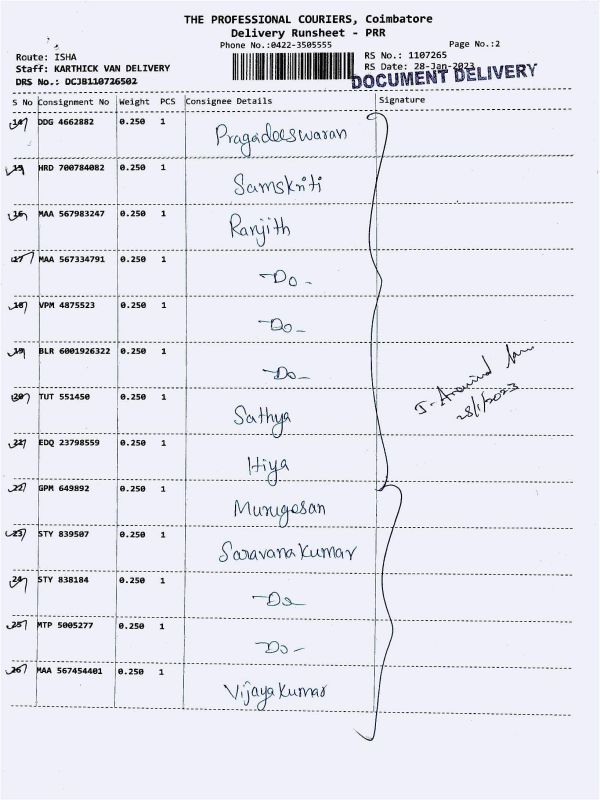 THE PROFESSIONAL COURIERS, Coimbatore
Delivery Runsheet - PRR
Phone No.:0422-3505555 Page No.:2
Route: ISHA RS No.: 1107265
Staff: KARTHICK VAN DELIVERY RS Date: 28-Jan-2023
DRS No.: DCJB110726502 DOCUMENT DELIVERY
S No Consignment No Weight PCS Consignee Details Signature
14 DDG 4662882 0.250 1 Pragadeeswaran
15 HRD 700784082 0.250 1 Samskriti
16 MAA 567983247 0.250 1 Ranjith
17 MAA 567334791 0.250 1 -Do-
18 VPM 4875523 0.250 1 -Do-
19 BLR 6001926322 0.250 1 -Do-
20 TUT 551450 0.250 1 Sathya
21 EDQ 23798559 0.250 1 Hiya
22 GPM 649892 0.250 1 Murugesan
23 STY 839507 0.250 1 Saravana Kumar
24 STY 838184 0.250 1 -Do-
25 MTP 5005277 0.250 1 -Do-
26 MAA 567454401 0.250 1 Vijaya Kumar
J- Aravind
28/1/2023